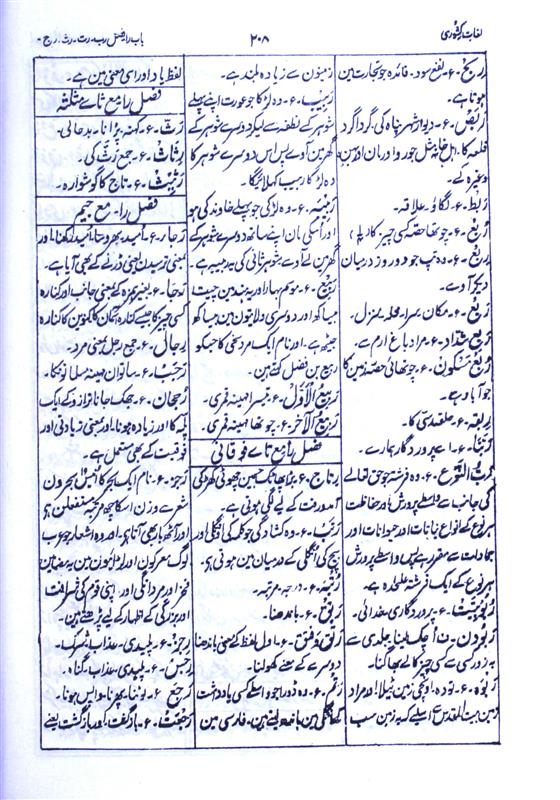 لغات کشوری
۲۰۸
باب را فصل رب۔رت۔رث۔رج۔
رِبْح۔ع۔نفع سود۔فائدہ جو تجارت مین
ہوتا ہے۔
رَبَض۔ع۔دیوار شہر پناہ کی۔گرداگرد
قلعہ کا۔اہل خانہ مثل جورو اور مان اور بہن
وغیرہ کے۔
رَبط۔ع۔لگاؤ۔علاقہ۔
رُبع۔ع۔چوتھا حصہ کسی چیز کا
رِبع۔ع۔وہ تپ جو دو روز درمیان
دیکر آوے۔
رَبع۔ع۔مکان۔سرا۔محلہ۔منزل۔
رَبع شدّاد۔مراد باغ ارم ہے۔
رُبع مسکون۔ع۔چوتھائی حصہ زمین کا
جو آباد ہے۔
رِبقہ۔ع۔حلقہ رسّی کا۔
رَبَّنا۔ع۔اے پروردگار ہمارے۔
رَبُّ النَّوع۔ع۔وہ فرشتہ جو حق تعالے
کی جانب سے واسطے پرورش اور حفاظت
ہر نوع کے انواع نباتات اور حیوانات اور
جمادات سے مقرر ہے پس واسطے پرورش
ہر نوع کے ایک فرشتہ علٰحدہ ہے۔
رُبوبیّت۔ع۔پروردگاری۔خدائی۔
رُبودن۔ف۔اُچک لینا۔جلدی سے
یہ زور کسی کی چیز لے بھاگنا۔
رَبوہ۔ع۔تودہ۔اونچی زمین ٹیلا اور مراد
زمین بیت المقدس اسلیے کہ یہ زمین سب
زمینون سے زیادہ بلند ہے۔
رَبیب۔ع۔وہ لڑکا جو عورت اپنے پہلے
شوہر کے نطفہ سے لیکر دوسرے شوہر کے
گھر مین آوے پس اس دوسرے شوہر کا
وہ لڑکا ربیب کہلائیگا۔
رَبیبہ۔ع۔وہ لڑکی جو پہلے خاوند کی ہو
اور اسکی مان اپنے ساتھ دوسرے شوہر کے
گھر مین لے آوے شوہر ثانی کی ربیبہ ہے۔
رَبیع۔ع۔موسم بہار اور یہ ہند مین چیت
بیساکھ اور دوسری ولایتون مین بیساکھ
جیٹھ ہے۔اور نام ایک مرد سخی کا جسکو
ربیع بن فضل کہتے ہین۔
رَبیعُ الاوّل۔تیسرا مہینہ قمری۔
رَبیعُ الآخر۔ع۔چوتھا مہینہ قمری۔
فصل را مع تاے فوقانی
رِتاج۔ع۔بڑا پھاٹک جسمین چھوٹی کھڑکی
آمد و رفت کے لیے لگی ہوتی ہے۔
رَتَب۔ع۔وہ کشادگی جو کلمہ کی انگلی اور
بیچ کی انگلی کے درمیان مین ہوتی ہے۔
رُتبہ۔ع۔درجہ۔مرتبہ۔
رَتق۔ع۔باندھنا۔
رَتق و فتق۔ع۔اول لفظ کے معنی باندھنا
دوسرے کے معنے کھولنا۔
رَتَم۔ع۔وہ ڈورا جو واسطے کسی یادداشت
کے انگلی مین باندھ لیتے ہین۔فارسی مین
لفظ یاد اور اسی معنی مین ہے۔
فصل را مع ثاے مثلثہ
رَثّ۔ع۔کہنہ۔پرانا۔بدحالی۔
رِثاث۔ع۔جمع رثّ کی۔
فصل را۔مع جیم
رَجا۔ع۔امید۔بھروسا۔امید رکھنا۔اور
بمعنی ترسیدن یعنی ڈرنے کے بھی آیا ہے۔
رَجا۔ع۔بغیر ہمزہ کے بمعنی جانب اور کنارہ
کسی چیز کا جیسے کنارہ آسمان کا یا کنوین کا کنارہ
رِجال۔ع۔جمع رجل بمعنی مرد۔
رَجَب۔ع۔ساتوان مہینہ مسلمانونکا۔
رُجحان۔ع۔جھک جانا ترازو کے ایک
پلّہ کا اور زیادہ ہونا۔اور بمعنی زیادتی اور
فوقیت کے بھی مستعمل ہے۔
رَجَز۔ع۔نام ایک بحر کا اُنیس بحرون
شعر سے وزن اسکا چھ مرتبہ مستفعلن ہے
اور آٹھ بار بھی آتا ہے اور وہ اشعار جو عرب
لوگ معرکون اور لڑائیون مین بہ مضامین
فخر اور مردانگی اور اپنی قوم کی شرافت
اور بزرگی کے اظہار کے لیے پڑھتے ہین۔
رِجز۔ع۔پلیدی۔عذاب۔شرک۔
رِجس۔ع۔پلیدی۔عذاب۔گناہ۔
رَجع۔ع۔لوٹنا۔پھرنا۔واپس ہونا۔
رَجعَت۔ع۔بازگشت۔اور بازگشت یعنے